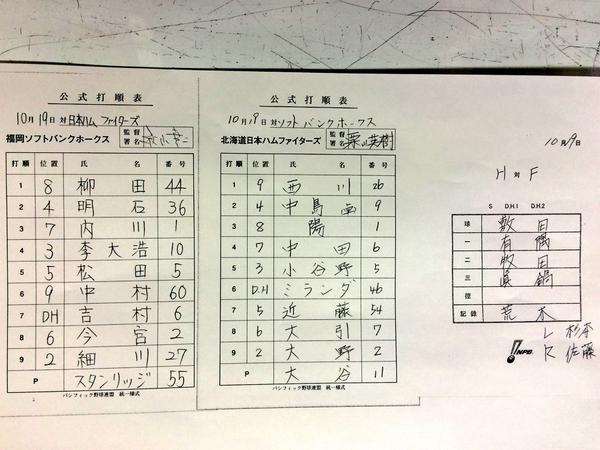 公式打順表
10月19日 対 日本ハム ファイターズ
福岡ソフトバンクホークス 監督署名 秋山幸二
打順 位置 氏 名 番号
1 8 柳田 44
2 4 明石 36
3 7 内川 1
4 3 李大浩 10
5 5 松田 5
6 9 中村 60
7 DH 吉村 6
8 6 今宮 2
9 2 細川 27
P スタンリッジ 55
パシフィック野球連盟 統一様式
公式打順表
10月19日 対 ソフトバンクホークス
北海道日本ハムファイターズ 監督署名 栗山英樹
打順 位置 氏 名 番号
1 9 西川 26
2 4 中島 9
3 8 陽 1
4 7 中田 6
5 3 小谷野 5
6 D.H ミランダ 46
7 5 近藤 54
8 6 大引 7
9 2 大野 2
P 大谷 11
パシフィック野球連盟 統一様式
10月19日
H 対 F
S D.H.1 D.H.2
球 敷田
一 有隅
二 牧田
三 眞鍋
控
記録 荒木
L 杉本
R 佐藤
NPB